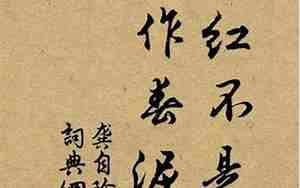 红不是
作春泥
龔自珍
詞典網